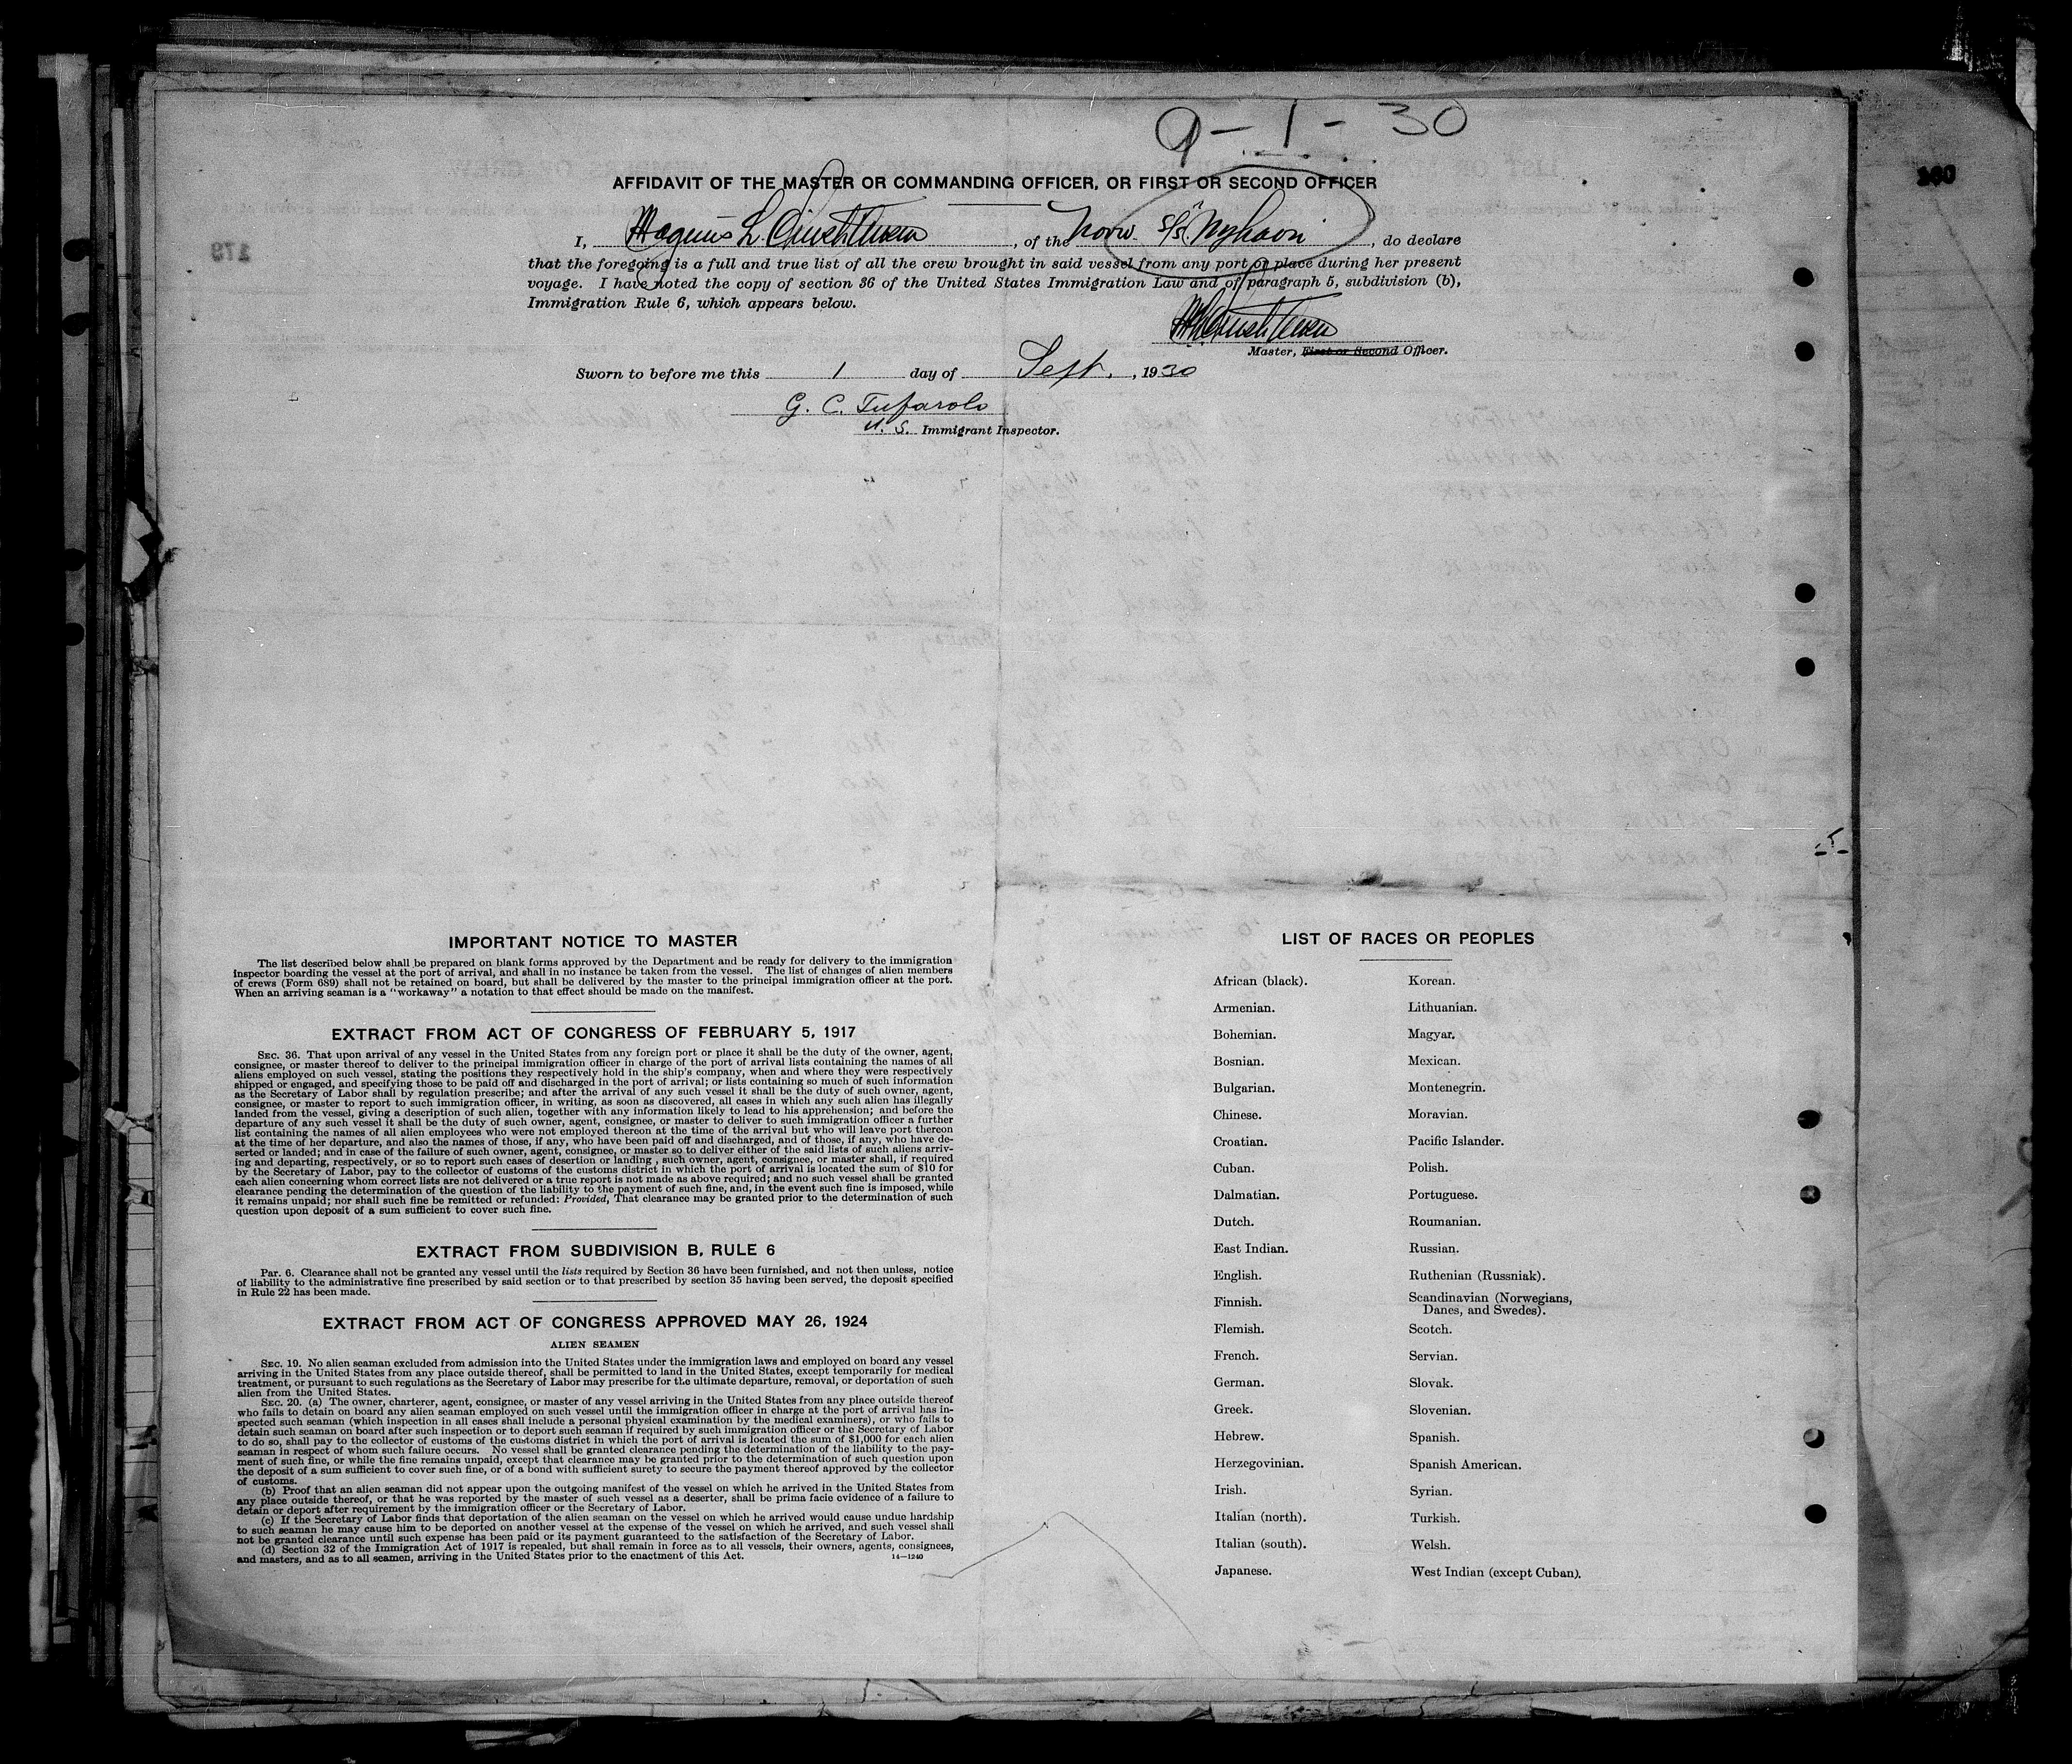 9-1-30
AFFIDAVIT OF THE MASTER OR COMMANDING OFFICER, OR FIRST OR SECOND OFFICER
I, Magnus L , of the Norw. S/S Nyhavn , do declare
that the foregoing is a full and true list of all the crew brought in said vessel from any port or place during her present
voyage. I have noted the copy of section 36 of the United States Immigration Law and of paragraph 5, subdivision (b),
Immigration Rule 6, which appears below.
Master, First or Second Officer.
Sworn to before me this 1 day of Sept. , 1930
G. C. Tufarolo
U. S. Immigrant Inspector.
179
IMPORTANT NOTICE TO MASTER
The list described below shall be prepared on blank forms approved by the Department and be ready for delivery to the immigration
inspector boarding the vessel at the port of arrival, and shall in no instance be taken from the vessel. The list of changes of alien members
of crews (Form 689) shall not be retained on board, but shall be delivered by the master to the principal immigration officer at the port.
When an arriving seaman is a "workaway" a notation to that effect should be made on the manifest.
EXTRACT FROM ACT OF CONGRESS OF FEBRUARY 5, 1917
SEC. 36. That upon arrival of any vessel in the United States from any foreign port or place it shall be the duty of the owner, agent,
consignee, or master thereof to deliver to the principal immigration officer in charge of the port of arrival lists containing the names of all
aliens employed on such vessel, stating the positions they respectively hold in the ship's company, when and where they were respectively
shipped or engaged, and specifying those to be paid off and discharged in the port of arrival; or lists containing so much of such information
as the Secretary of Labor shall by regulation prescribe; and after the arrival of any such vessel it shall be the duty of such owner, agent,
consignee, or master to report to such immigration officer, in writing, as soon as discovered, all cases in which any such alien has illegally
landed from the vessel, giving a description of such alien, together with any information likely to lead to his apprehension; and before the
departure of any such vessel it shall be the duty of such owner, agent, consignee, or master to deliver to such immigration officer a further
list containing the names of all alien employees who were not employed thereon at the time of the arrival but who will leave port thereon
at the time of her departure, and also the names of those, if any, who have been paid off and discharged, and of those, if any, who have de-
serted or landed; and in case of the failure of such owner, agent, consignee, or master so to deliver either of the said lists of such aliens arriv-
ing and departing, respectively, or so to report such cases of desertion or landing , such owner, agent, consignee, or master shall, if required
by the Secretary of Labor, pay to the collector of customs of the customs district in which the port of arrival is located the sum of $10 for
each alien concerning whom correct lists are not delivered or a true report is not made as above required; and no such vessel shall be granted
clearance pending the determination of the question of the liability to the payment of such fine, and, in the event such fine is imposed, while
it remains unpaid; nor shall such fine be remitted or refunded: Provided, That clearance may be granted prior to the determination of such
question upon deposit of a sum sufficient to cover such fine.
EXTRACT FROM SUBDIVISION B, RULE 6
PAR. 6. Clearance shall not be granted any vessel until the lists required by Section 36 have been furnished, and not then unless, notice
of liability to the administrative fine prescribed by said section or to that prescribed by section 35 having been served, the deposit specified
in Rule 22 has been made.
EXTRACT FROM ACT OF CONGRESS APPROVED MAY 26, 1924
ALIEN SEAMEN
SEC. 19. No alien seaman excluded from admission into the United States under the immigration laws and employed on board any vessel
arriving in the United States from any place outside thereof, shall be permitted to land in the United States, except temporarily for medical
treatment, or pursuant to such regulations as the Secretary of Labor may prescribe for the ultimate departure, removal, or deportation of such
alien from the United States.
SEC. 20. (a) The owner, charterer, agent, consignee, or master of any vessel arriving in the United States from any place outside thereof
who fails to detain on board any alien seaman employed on such vessel until the immigration officer in charge at the port of arrival has in-
spected such seaman (which inspection in all cases shall include a personal physical examination by the medical examiners), or who fails to
detain such seaman on board after such inspection or to deport such seaman if required by such immigration officer or the Secretary of Labor
to do so, shall pay to the collector of customs of the customs district in which the port of arrival is located the sum of $1,000 for each alien
seaman in respect of whom such failure occurs. No vessel shall be granted clearance pending the determination of the liability to the pay-
ment of such fine, or while the fine remains unpaid, except that clearance may be granted prior to the determination of such question upon
the deposit of a sum sufficient to cover such fine, or of a bond with sufficient surety to secure the payment thereof approved by the collector
of customs.
(b) Proof that an alien seaman did not appear upon the outgoing manifest of the vessel on which he arrived in the United States from
any place outside thereof, or that he was reported by the master of such vessel as a deserter, shall be prima facie evidence of a failure to
detain or deport after requirement by the immigration officer or the Secretary of Labor.
(c) If the Secretary of Labor finds that deportation of the alien seaman on the vessel on which he arrived would cause undue hardship
to such seaman he may cause him to be deported on another vessel at the expense of the vessel on which he arrived, and such vessel shall
not be granted clearance until such expense has been paid or its payment guaranteed to the satisfaction of the Secretary of Labor.
(d) Section 32 of the Immigration Act of 1917 is repealed, but shall remain in force as to all vessels, their owners, agents, consignees,
and masters, and as to all seamen, arriving in the United States prior to the enactment of this Act. 14—1240
LIST OF RACES OR PEOPLES
African (black). Korean.
Armenian. Lithuanian.
Bohemian. Magyar.
Bosnian. Mexican.
Bulgarian. Montenegrin.
Chinese. Moravian.
Croatian. Pacific Islander.
Cuban. Polish.
Dalmatian. Portuguese.
Dutch. Roumanian.
East Indian. Russian.
English. Ruthenian (Russniak).
Finnish. Scandinavian (Norwegians,
Danes, and Swedes).
Flemish. Scotch.
French. Servian.
German. Slovak.
Greek. Slovenian.
Hebrew. Spanish.
Herzegovinian. Spanish American.
Irish. Syrian.
Italian (north). Turkish.
Italian (south). Welsh.
Japanese. West Indian (except Cuban).